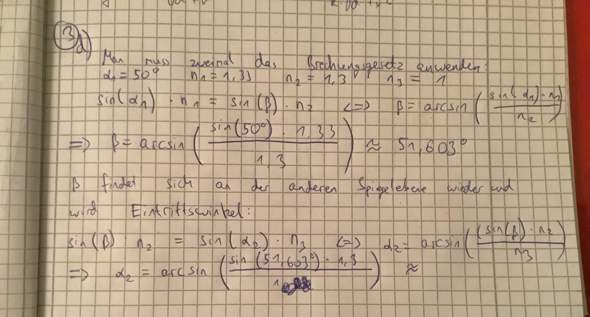 ③ d) Man muss zweimal das Brechungsgesetz anwenden:
α₁ = 50° n₁ = 1,33 n₂ = 1,3 n₃ = 1
sin(α₁) · n₁ = sin(β) · n₂ <=> β = arcsin((sin(α₁) · n₁)/n₂)
=> β = arcsin((sin(50°) · 1,33)/1,3) ≈ 51,603°
β findet sich an der anderen Spiegelebene wieder und
wird Eintrittswinkel:
sin(β) n₂ = sin(α₂) · n₃ <=> α₂ = arcsin((sin(β) · n₂)/n₃)
=> α₂ = arcsin((sin(51,603°) · 1,3)/1) ≈